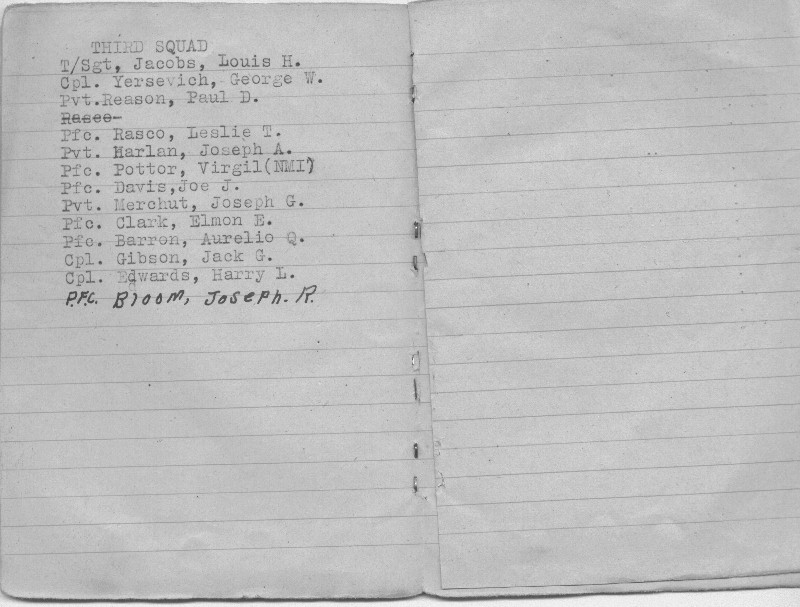 THIRD SQUAD
T/Sgt, Jacobs, Louis H.
Cpl. Yersevich, George W.
Pvt.Reason, Paul D.
Rasco-
Pfc. Rasco, Leslie T.
Pvt. Harlan, Joseph A.
Pfc. Pottor, Virgil(NMI)
Pfc. Davis,Joe J.
Pvt. Merchut, Joseph G.
Pfc. Clark, Elmon E.
Pfc. Barron, Aurelio Q.
Cpl. Gibson, Jack G.
Cpl. Edwards, Harry L.
P.F.C. Bloom, Joseph. R.